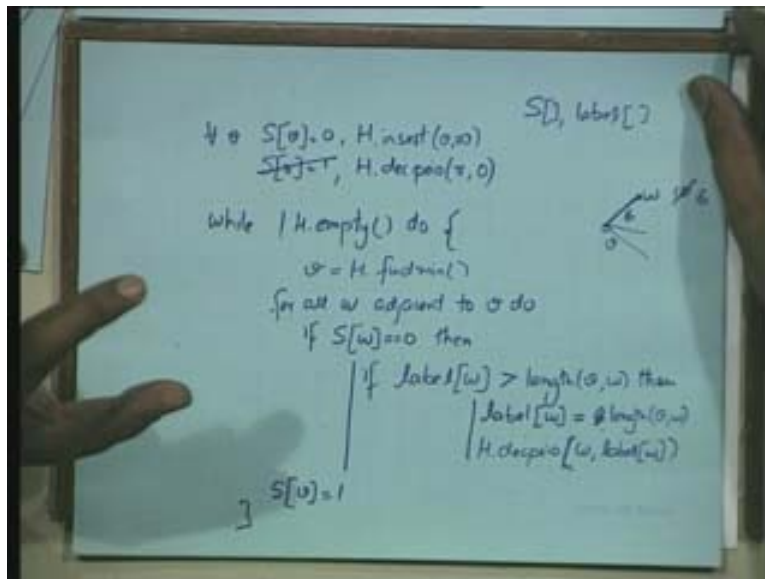 S[], label[]
∀ v S[v]=0, H.insert(v,∞)
S[r]=1, H.decprio(r,0)
while ! H.empty() do {
v = H.findmin()
for all w adjacent to v do
if S[w]==0 then
if label[w] > length(v,w) then
label[w] = length(v,w)
H.decprio(w, label[w])
S[v]=1
}
w 6
6
v